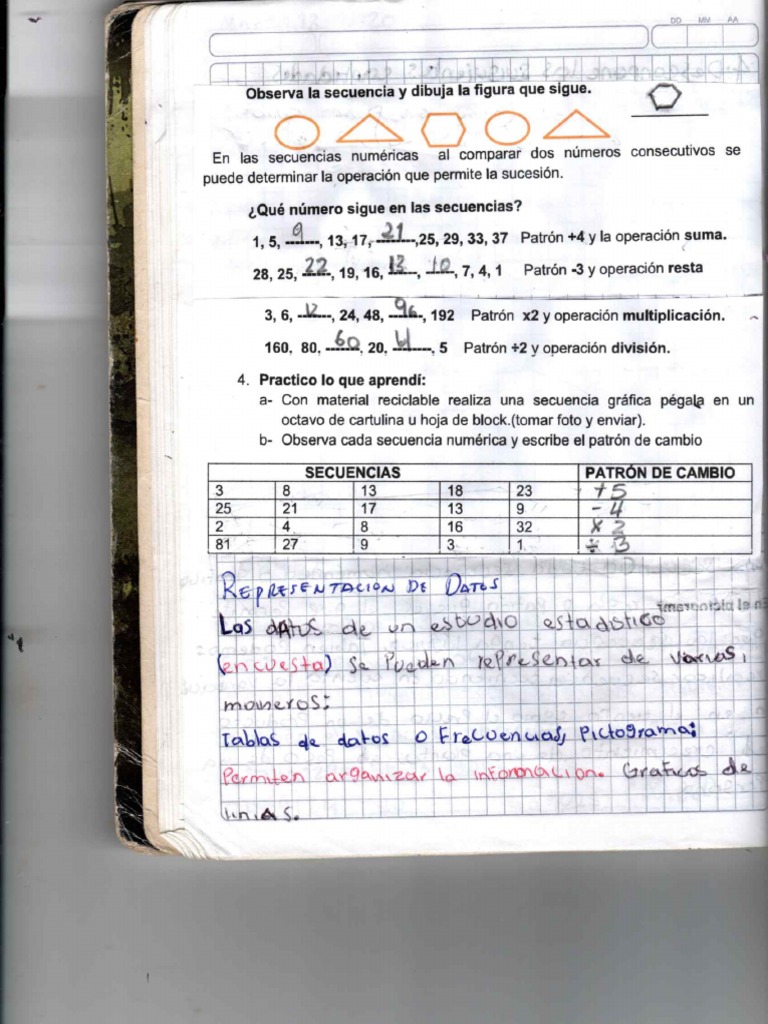 DD MM AA
Observa la secuencia y dibuja la figura que sigue.
En las secuencias numéricas al comparar dos números consecutivos se
puede determinar la operación que permite la sucesión.
¿Qué número sigue en las secuencias?
1, 5, 9, 13, 17, 21, 25, 29, 33, 37 Patrón +4 y la operación suma.
28, 25, 22, 19, 16, 13, 10, 7, 4, 1 Patrón -3 y operación resta
3, 6, 12, 24, 48, 96, 192 Patrón x2 y operación multiplicación.
160, 80, 60, 20, 61, 5 Patrón ÷2 y operación división.
4. Practico lo que aprendí:
a- Con material reciclable realiza una secuencia gráfica pégala en un
octavo de cartulina u hoja de block.(tomar foto y enviar).
b- Observa cada secuencia numérica y escribe el patrón de cambio
SECUENCIAS PATRÓN DE CAMBIO
3 8 13 18 23 +5
25 21 17 13 9 -4
2 4 8 16 32 x2
81 27 9 3 1 ÷3
REPRESENTACION DE DATOS
Las DATUS de un estudio estadistico
(encuesta) se Pueden representar de varias,
maneros:
Tablas de datos o Frecuencias, Pictograma:
Permiten organizar la informacion. Graficos de
linias.